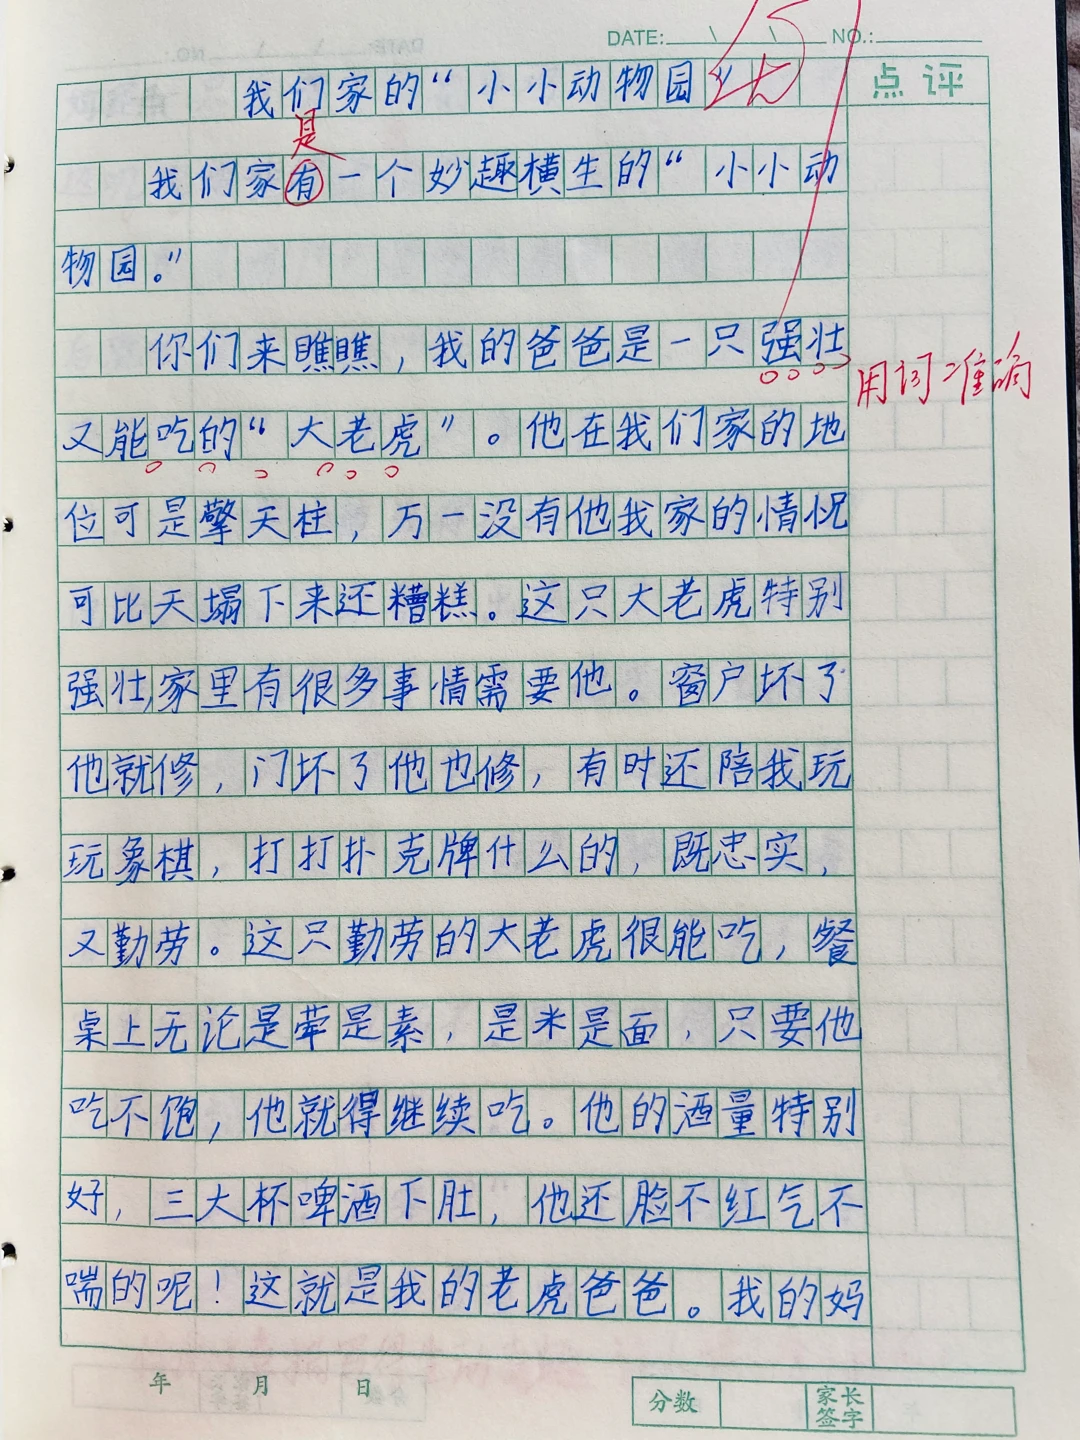 DATE: \ \ NO.:
我们家的“小小动物园”
点评
是
我们家有一个妙趣横生的“小小动
物园。”
你们来瞧瞧，我的爸爸是一只强壮
用词准确
又能吃的“大老虎”。他在我们家的地
位可是擎天柱，万一没有他我家的情况
可比天塌下来还糟糕。这只大老虎特别
强壮,家里有很多事情需要他。窗户坏了
他就修，门坏了他也修，有时还陪我玩
玩象棋，打打扑克牌什么的，既忠实，
又勤劳。这只勤劳的大老虎很能吃，餐
桌上无论是荤是素，是米是面，只要他
吃不饱，他就得继续吃。他的酒量特别
好，三大杯啤酒下肚，他还脸不红气不
喘的呢！这就是我的老虎爸爸。我的妈
年 月 日
分数
家长
签字